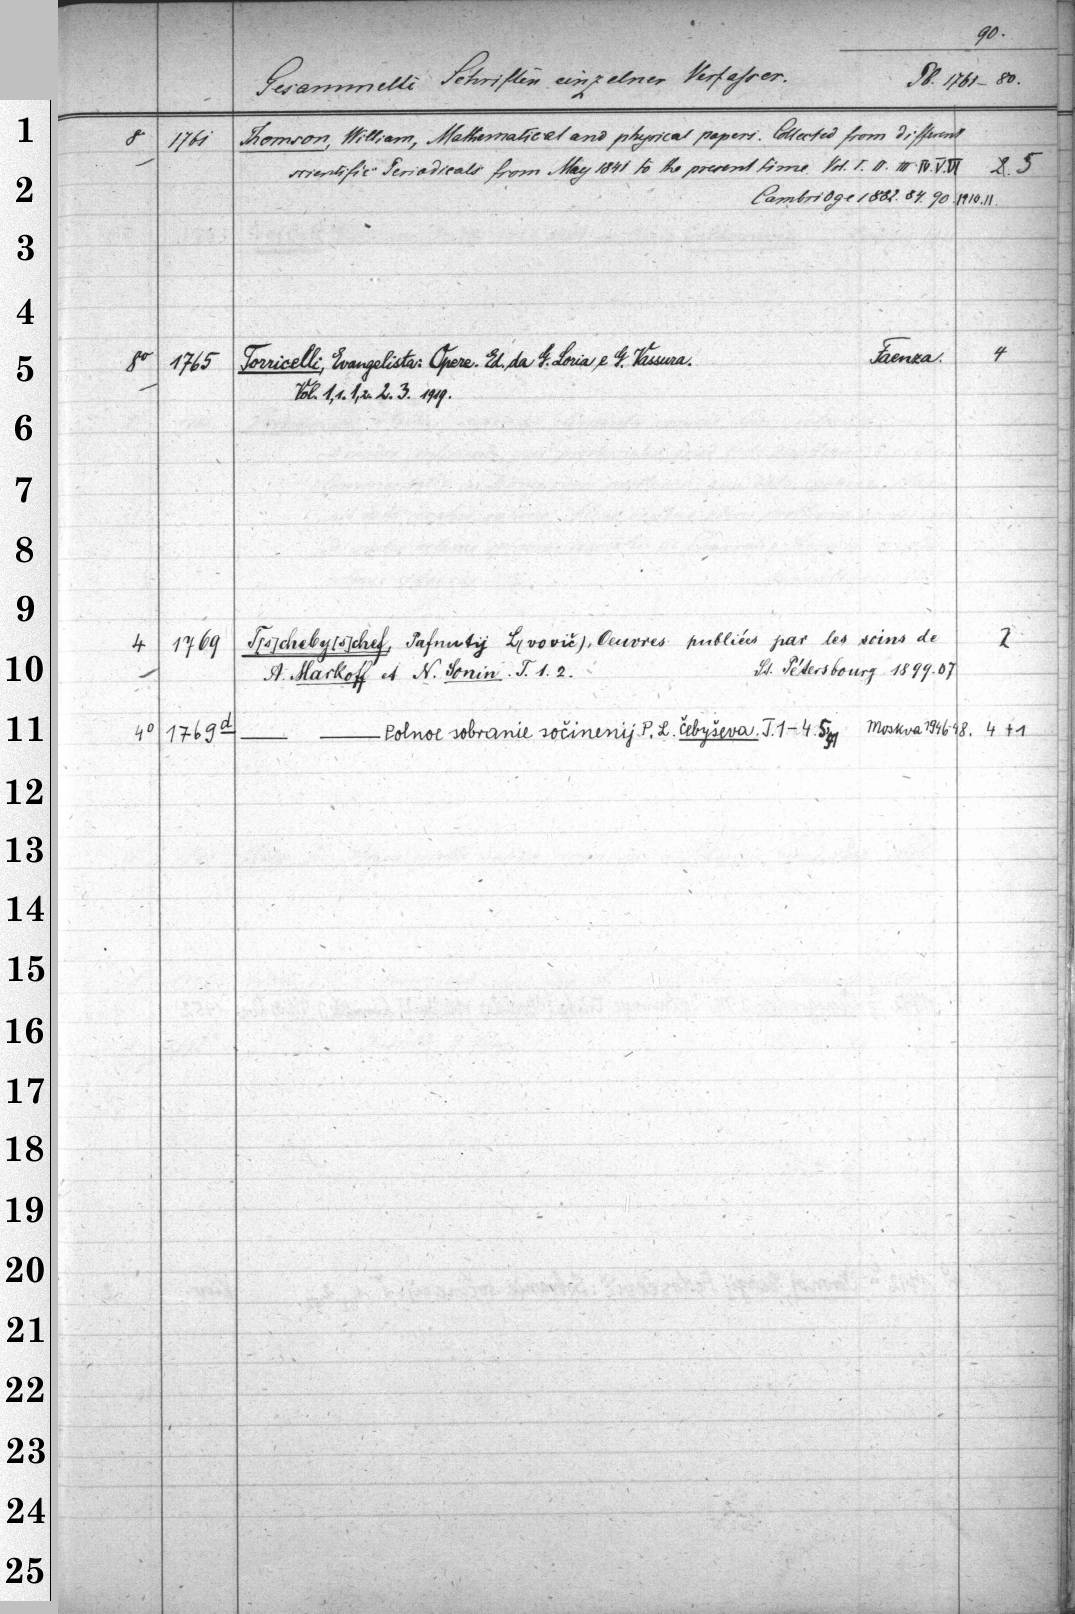 90.
Gesammelte Schriften einzelner Verfasser. Pb. 1761–80.
1
8 1761 Thomson, William, Mathematical and physical papers. Collected from different
scientific Periodicals from May 1841 to the present time. Vol. I. II. III IV. V. VI 2. 5
2
Cambridge 1882. 84. 90. 1910. 11.
3
4
8° 1765 Torricelli, Evangelista: Opere. Ed. da G. Loria e G. Vassura. Faenza. 4
5
Vol. 1,1. 1,2. 2. 3. 1919.
6
7
8
9
4 1769 T[s]cheby[s]chef, Pafnutij L(vovič), Oeuvres publiées par les soins de 2
10 A. Markoff et N. Sonin. T. 1. 2. St. Pétersbourg 1899.07
11 4° 1769d Polnoe sobranie sočinenij P. L. Čebyševa. T. 1–4. 5,51 Moskva 1946-48. 4 +1
12
13
14
15
16
17
18
19
20
21
22
23
24
25